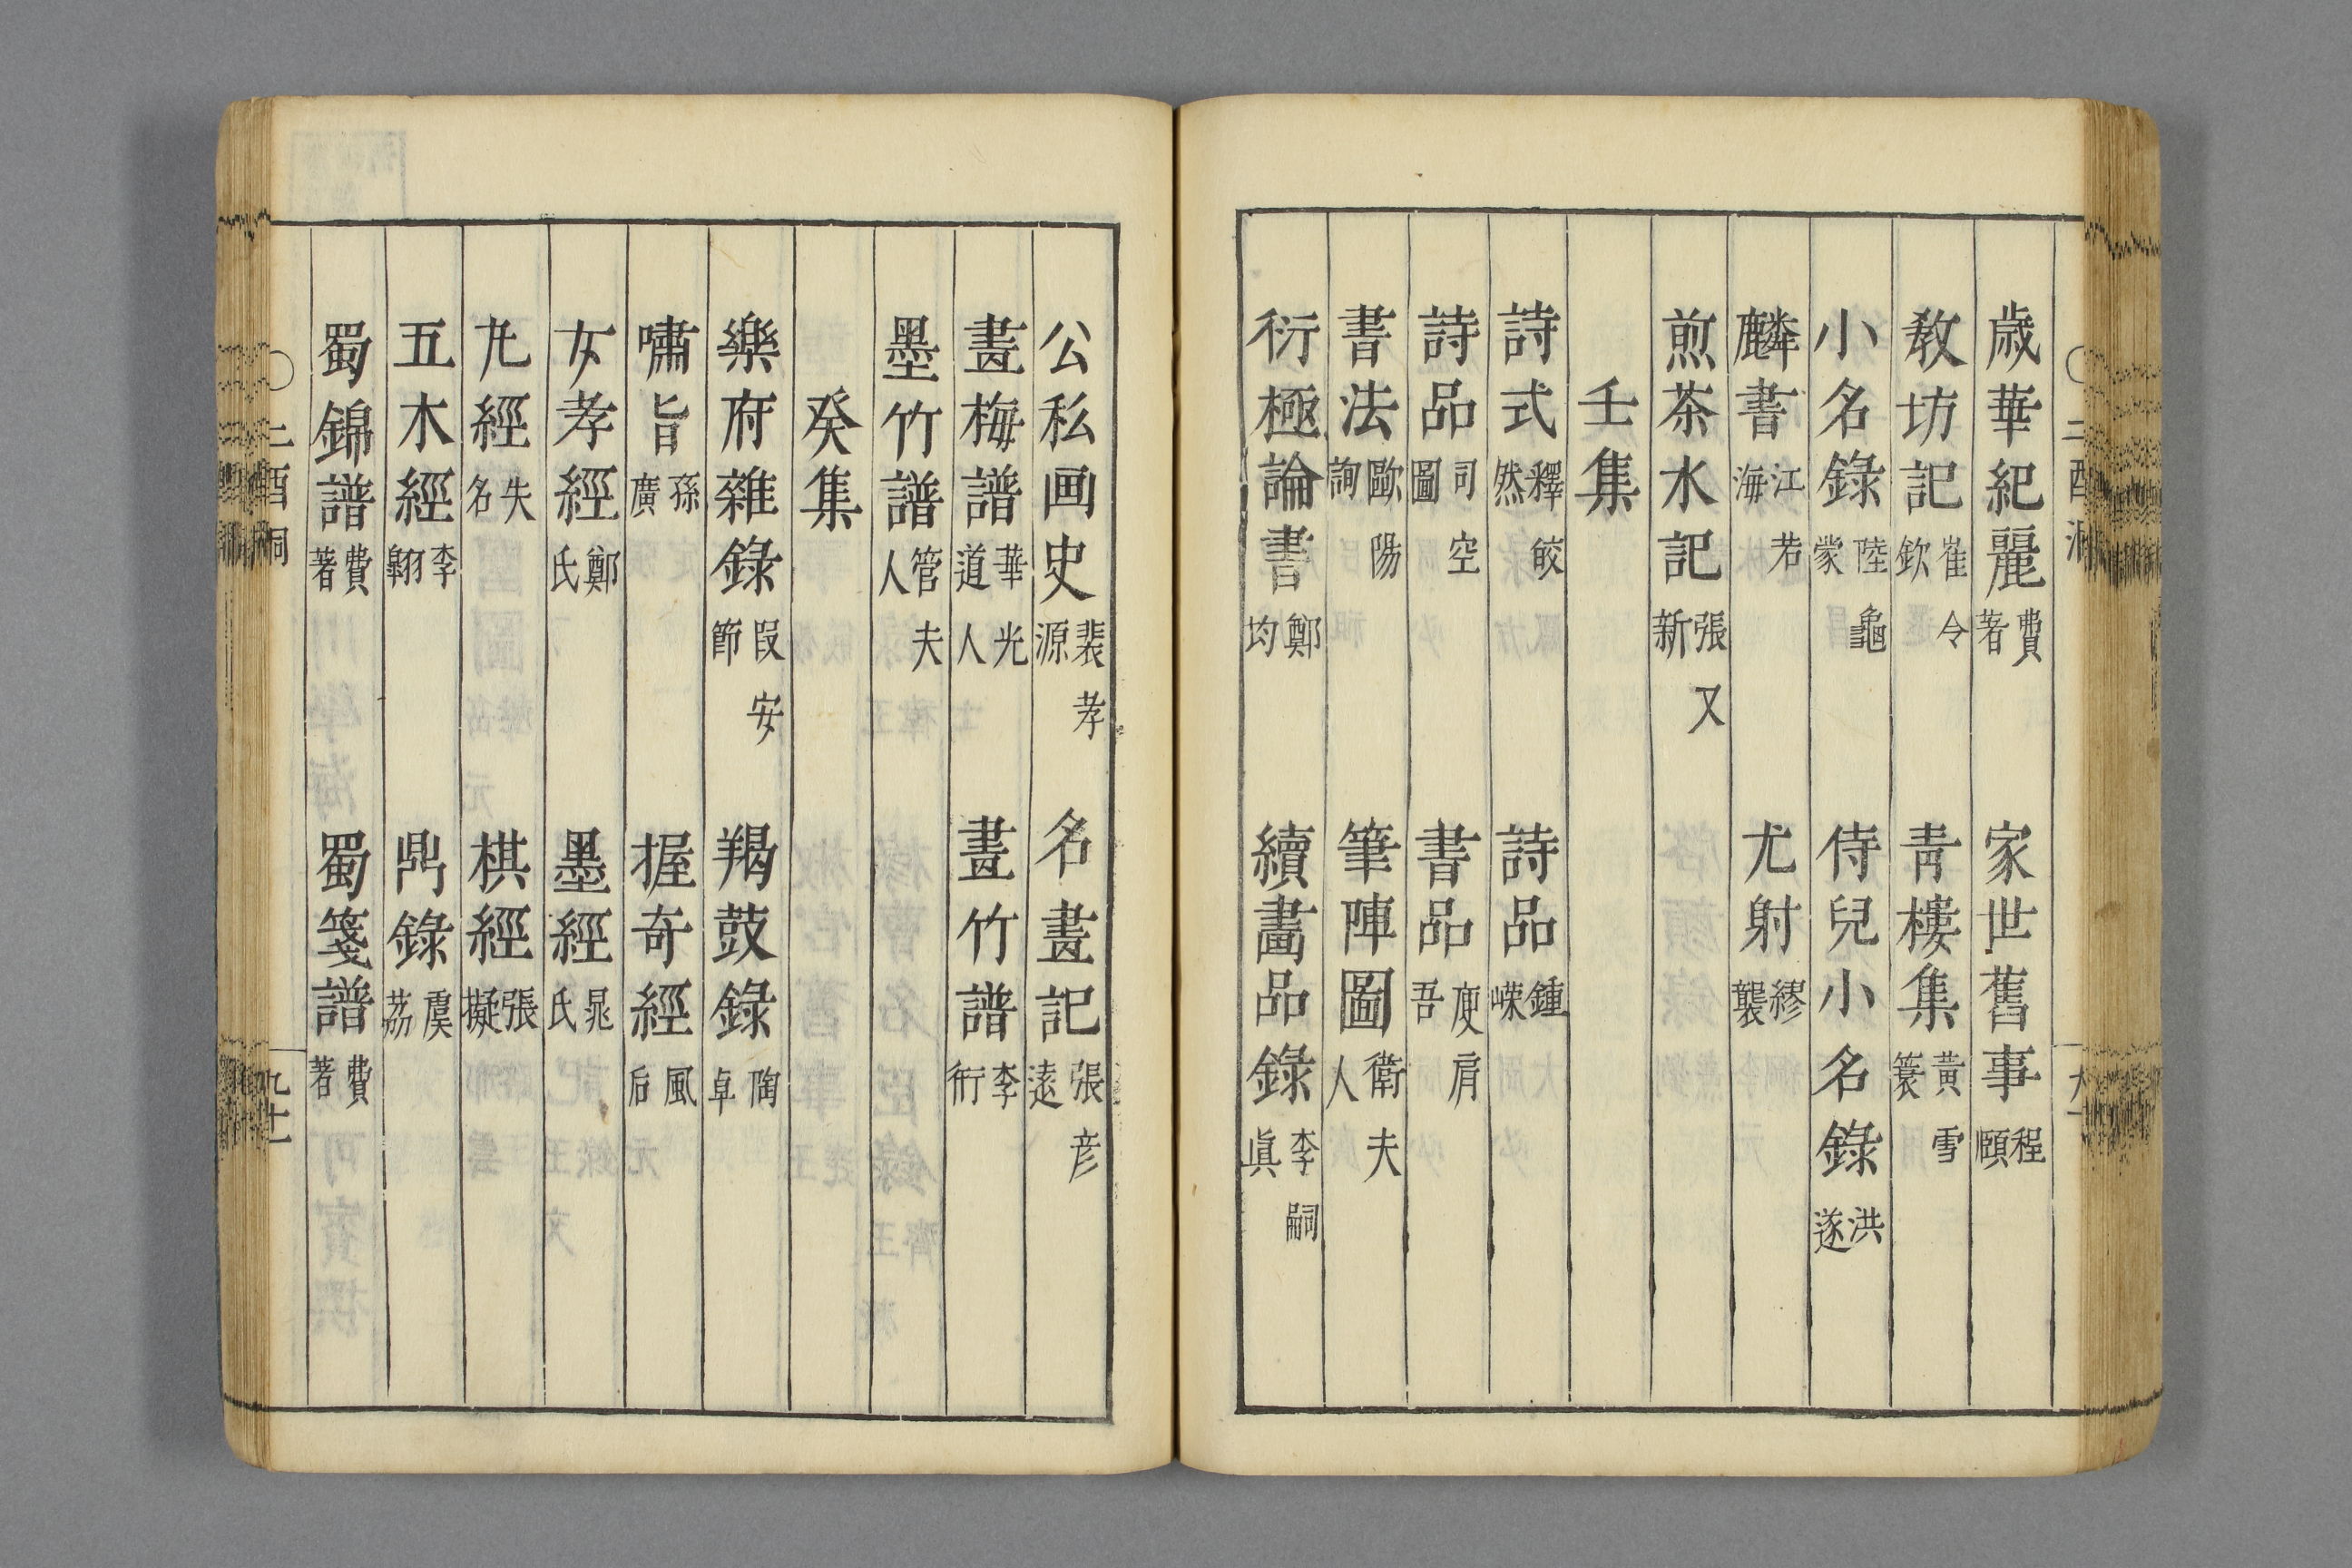 歲華紀麗費著 家世舊事程頤
敎坊記崔令欽 青樓集黃雪簑
小名錄陸龜蒙 侍兒小名錄洪遂
麟書江若海 尤射繆襲
煎茶水記張又新
壬集
詩式釋皎然 詩品鍾嶸
詩品司空圖 書品庾肩吾
書法歐陽詢 筆陣圖衛夫人
衍極論書鄭均 續畫品錄李嗣眞
公私画史裴孝源 名畫記張彦遠
畫梅譜華光道人 畫竹譜李衎
墨竹譜管夫人
癸集
樂府雜錄段安節 羯鼓錄南卓
嘯旨孫廣 握奇經風后
女孝經鄭氏 墨經晁氏
丸經失名 棋經張擬
五木經李翱 鼎錄虞荔
蜀錦譜費著 蜀箋譜費著
二酉洞